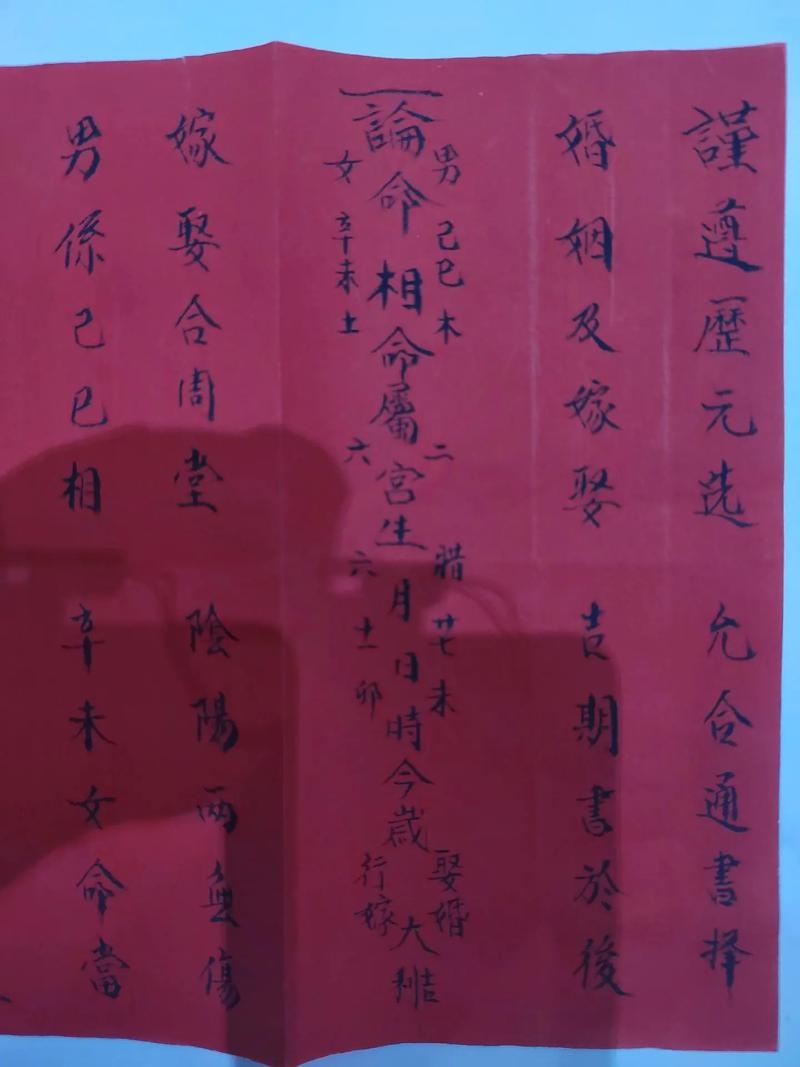 謹遵歷元选 允合通書择
婚姻及嫁娶 吉期書於後
一論命相命屬宮生月日時今歲大利吉
男己巳木 二 腊廿七未 娶婚
女辛未土 六 六十一卯 行嫁
嫁娶合周堂 陰陽兩無傷
男係己巳相 辛未女命當